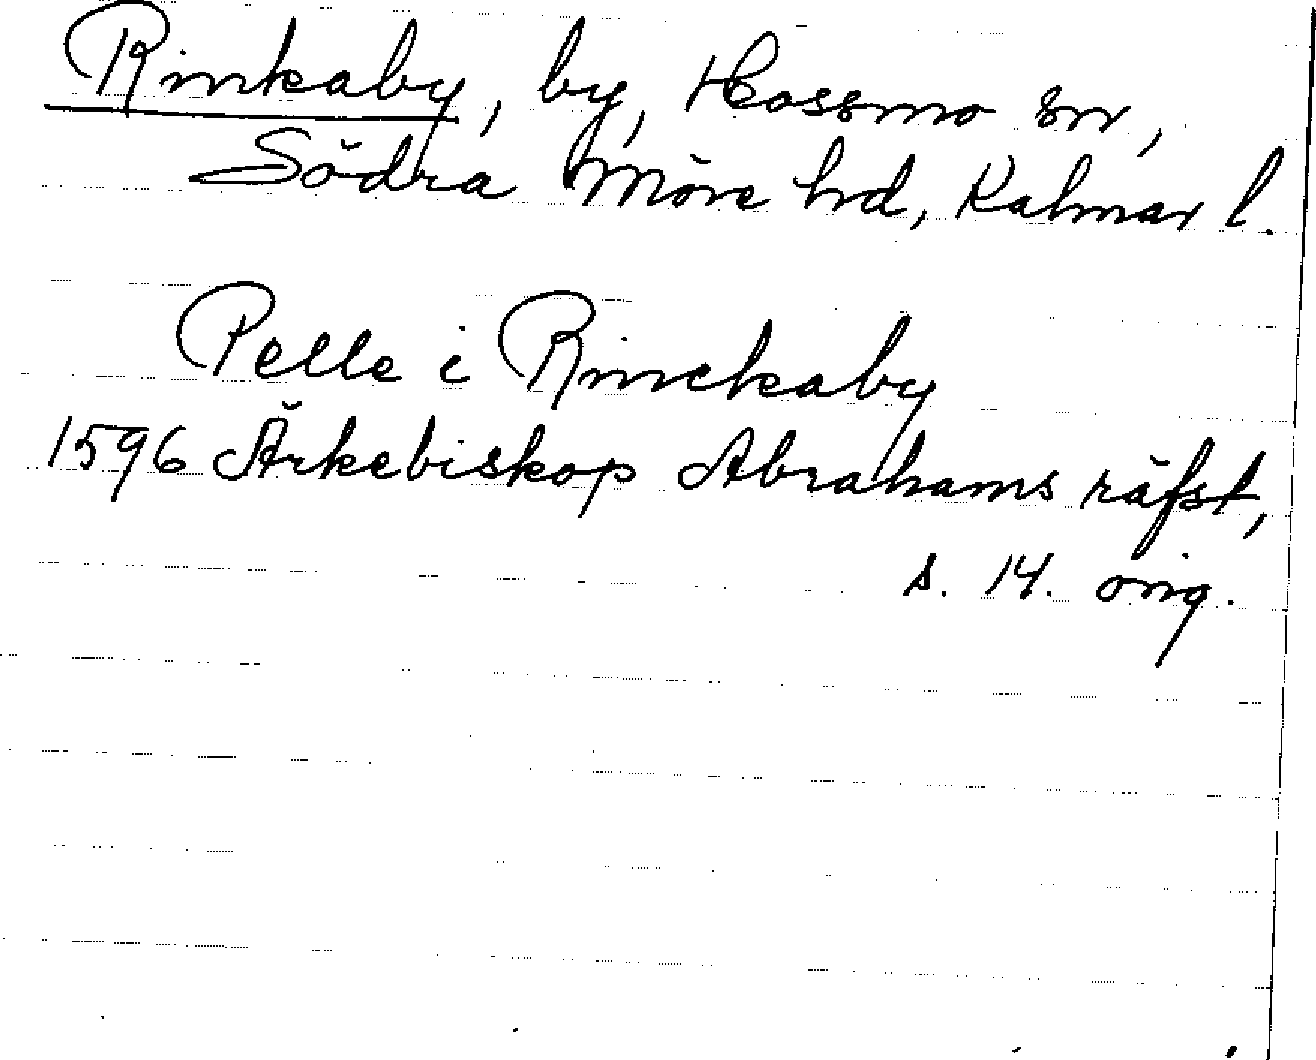 Rinkaby, by, Hossmo sn,
Södra Möre hd, Kalmar l.
Pelle i Rinckaby
1596 Ärkebiskop Abrahams räfst,
s. 14. orig.